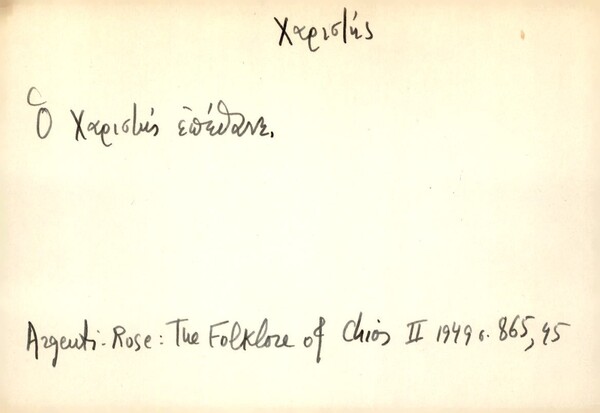 Χαριστής
Ὁ Χαριστής ἐπέθανε.
Argenti-Rose: The Folklore of Chios II 1949 σ. 865, 45